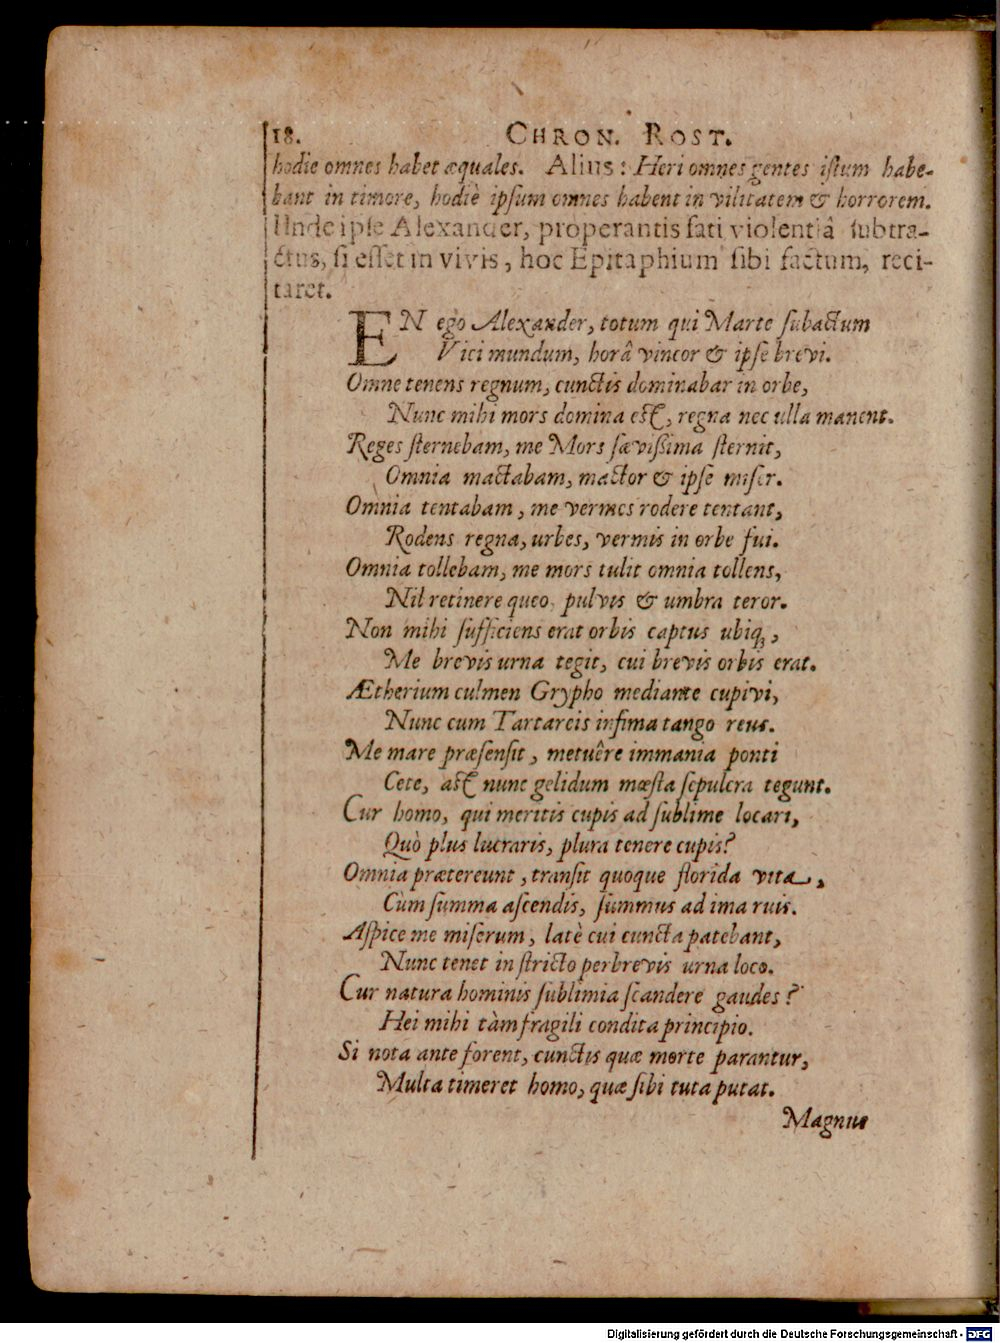 18. CHRON. ROST.
hodie omnes habet æquales. Alius: Heri omnes gentes iſtum habe-
bant in timore, hodiè ipſum omnes habent in vilitatem & horrorem.
Unde ipſe Alexander, properantis fati violentiâ ſubtra-
ctus, ſi eſſet in vivis, hoc Epitaphium ſibi factum, reci-
taret.
EN ego Alexander, totum qui Marte ſubactum
Vici mundum, horâ vincor & ipſe brevi.
Omne tenens regnum, cunctis dominabar in orbe,
Nunc mihi mors domina eſt, regna nec ulla manent.
Reges ſternebam, me Mors ſæviſſima ſternit,
Omnia mactabam, mactor & ipſe miſer.
Omnia tentabam, me vermes rodere tentant,
Rodens regna, urbes, vermis in orbe fui.
Omnia tollebam, me mors tulit omnia tollens,
Nil retinere queo, pulvis & umbra teror.
Non mihi ſufficiens erat orbis captus ubiq́ꝫ,
Me brevis urna tegit, cui brevis orbis erat.
Ætherium culmen Grypho mediante cupivi,
Nunc cum Tartareis infima tango reus.
Me mare præſenſit, metuêre immania ponti
Cete, aſt nunc gelidum mœſta ſepulcra tegunt.
Cur homo, qui meritis cupis ad ſublime locari,
Quò plus lucraris, plura tenere cupis?
Omnia prætereunt, tranſit quoque florida vita,
Cùm ſumma aſcendis, ſummus ad ima ruis.
Aſpice me miſerum, latè cui cuncta patebant,
Nunc tenet in ſtricto perbrevis urna loco.
Cur natura hominis ſublimia ſcandere gaudes?
Hei mihi tàm fragili condita principio.
Si nota ante forent, cunctis quæ morte parantur,
Multa timeret homo, quæ ſibi tuta putat.
Magnus
Digitalisierung gefördert durch die Deutsche Forschungsgemeinschaft - DFG